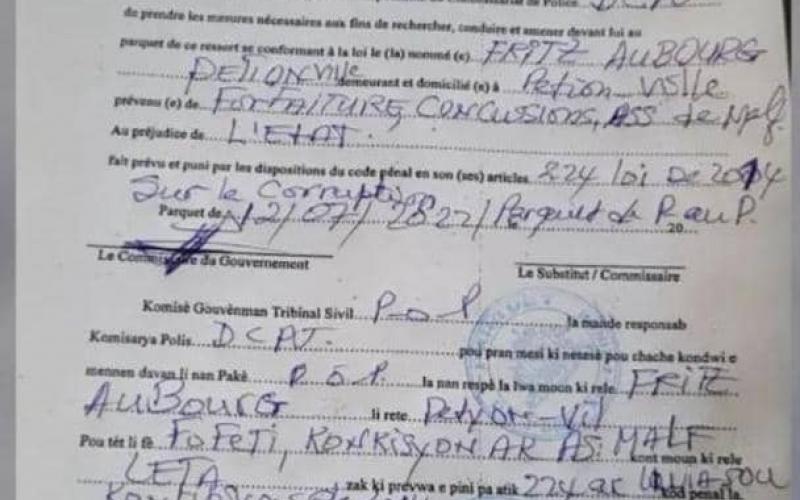 de prendre les mesures nécessaires aux fins de rechercher, conduire et amener devant lui au
parquet de ce ressort se conformant à la loi le (la) nommé (e) FRITZ AUBOURG
PETIONVille demeurant et domicilié (e) à Petion-ville
prévenu (e) de FORFAITURE, CONCUSSIONS, ASS de
Au préjudice de L'ETAT.
fait prévu et puni par les dispositions du code pénal en son (ses) articles 224 loi DE 2014
Sur la Corruption
Parquet de 12/07/2022/Parquet de P. au P. 20
Le Commissaire du Gouvernement
Le Substitut / Commissaire
Komisè Gouvènman Tribinal Sivil P-o-P la mande responsab
Komisarya Polis DCPJ. pou pran mesi ki nesesè pou chache kondwi e
mennen davan li nan Pakè P.O.P. la nan respè la lwa moun ki rele FRITZ
AUBOURG li rete Petyon-Vil
Pou tèt li fè FOFETI, KONKISYON AK AS. MALF kont moun ki rele
LETA zak ki prevwa e pini pa atik 224 ak